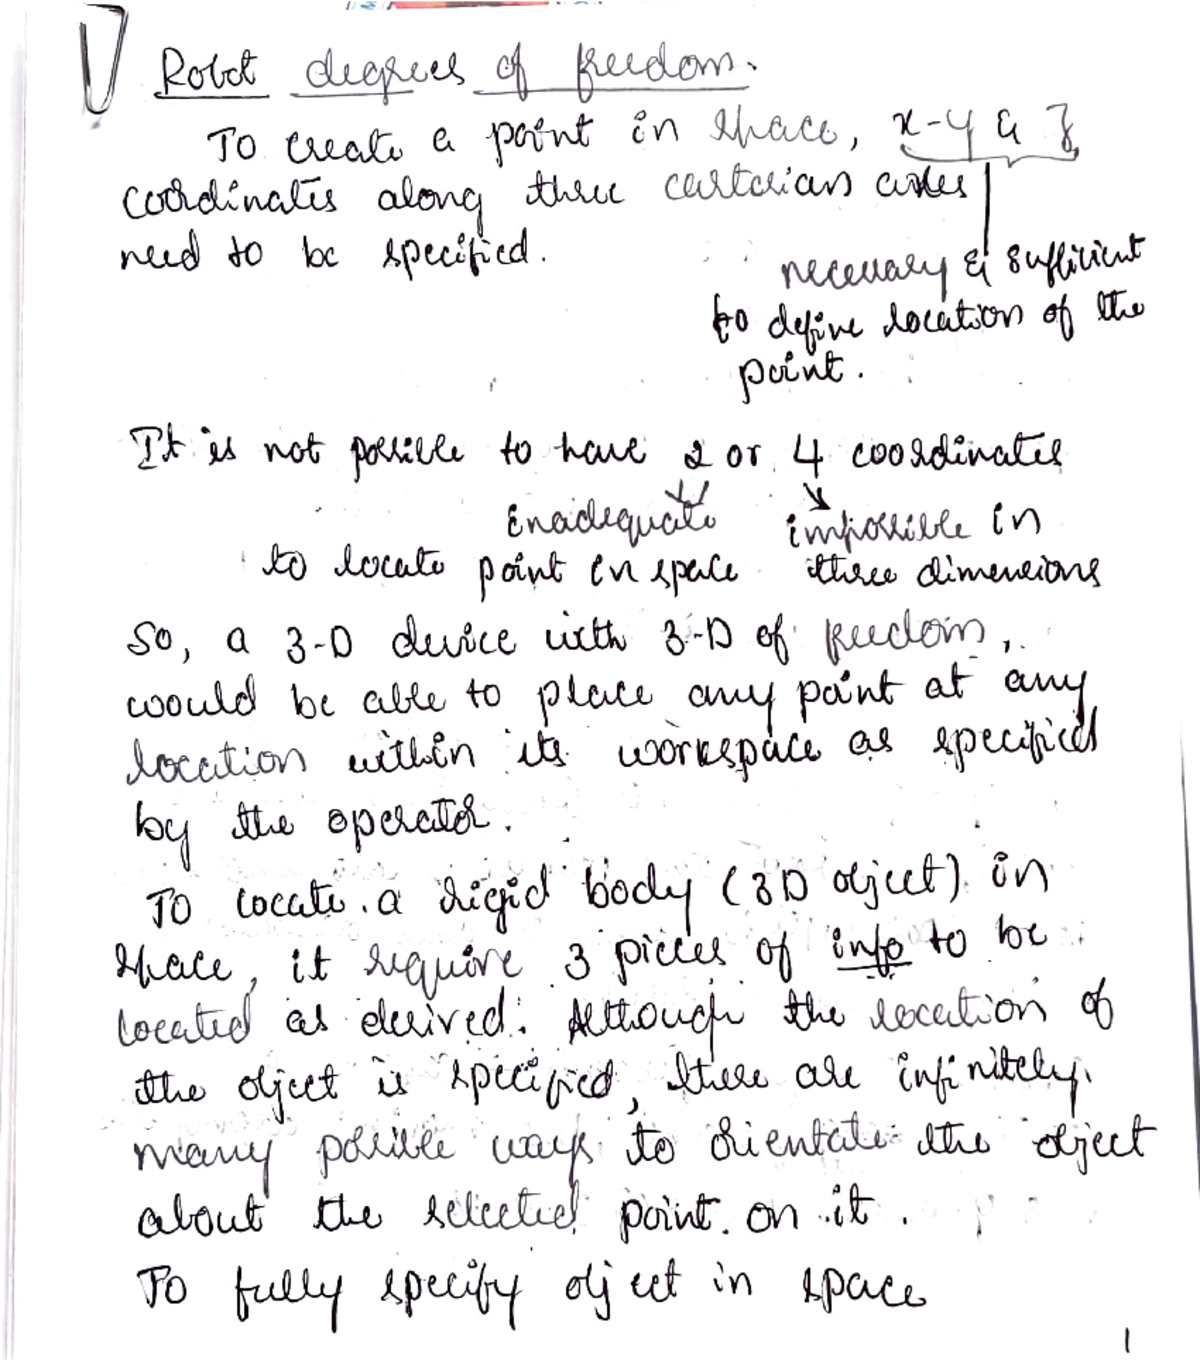 Robot degrees of freedom.
To create a point in space, x-y & z
coordinates along three cartesian axes
need to be specified.
necessary & sufficient
to define location of the
point.
It is not possible to have 2 or 4 coordinates
inadequate impossible in
to locate point in space three dimensions
So, a 3-D device with 3-D of freedom,
would be able to place any point at any
location within its workspace as specified
by the operator.
To locate a rigid body (3D object) in
space, it require 3 pieces of info to be
located as desired. Although the location of
the object is specified, there are infinitely
many possible ways to orientate the object
about the selected point on it.
To fully specify object in space
1